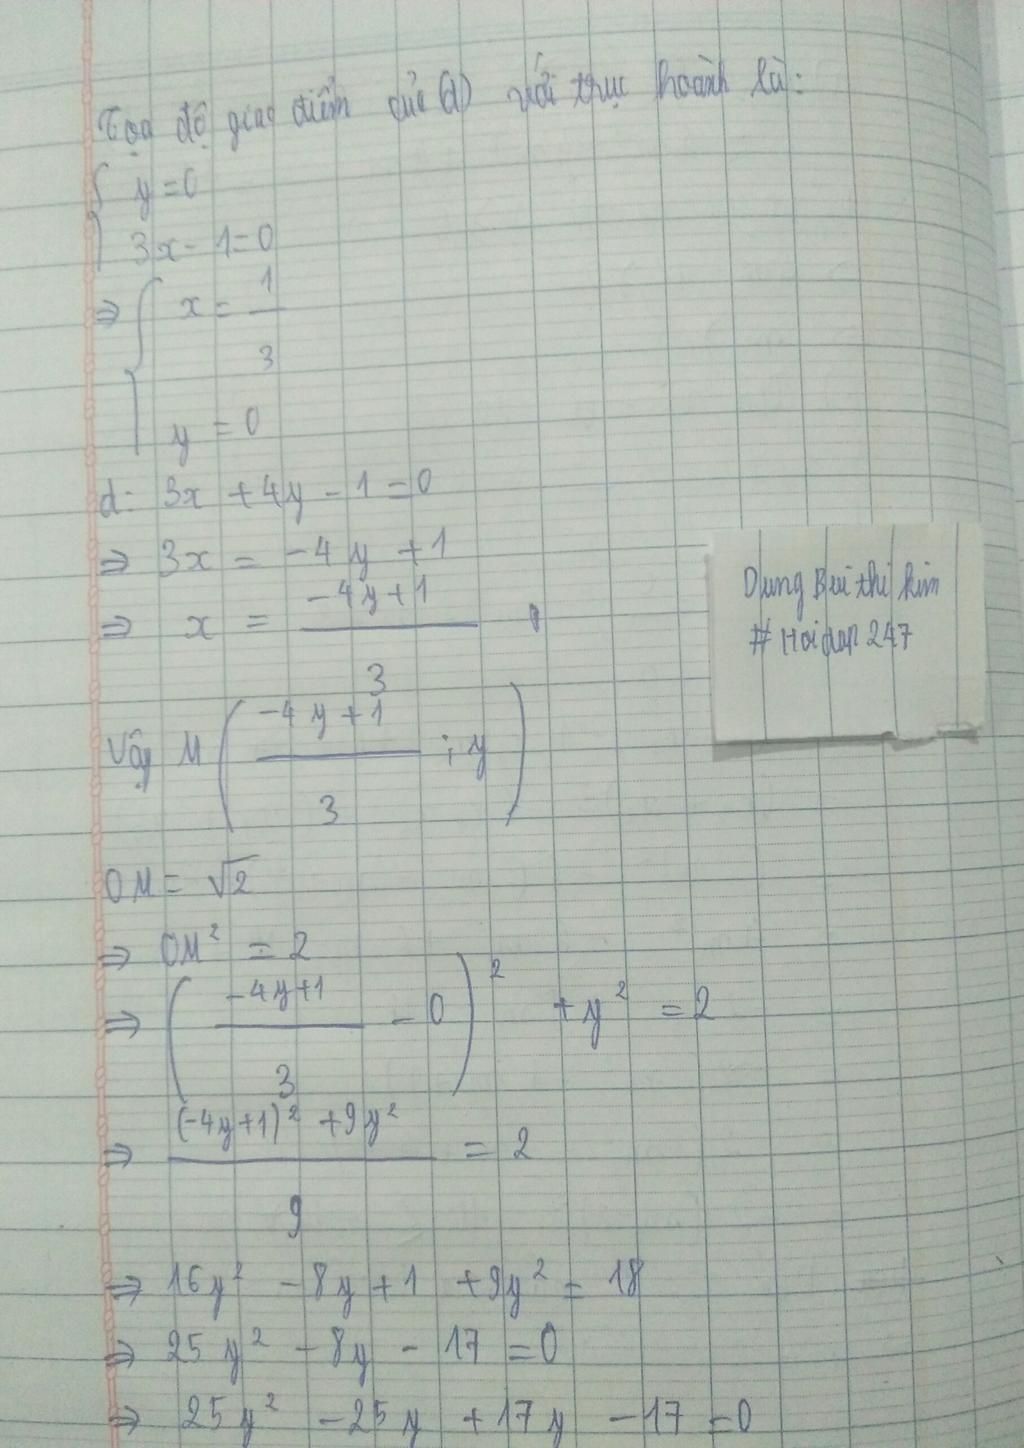 Tọa độ giao điểm của (d) với trục hoành là:
{ y = 0
3x - 1 = 0
⇒ { x = 1/3
y = 0
d: 3x + 4y - 1 = 0
⇒ 3x = -4y + 1
⇒ x = (-4y + 1)/3
Vậy M ( (-4y + 1)/3 ; y )
OM = √2
⇒ OM² = 2
⇒ ( (-4y+1)/3 - 0 )² + y² = 2
⇒ ((-4y+1)² + 9y²)/9 = 2
⇒ 16y² - 8y + 1 + 9y² = 18
⇒ 25y² - 8y - 17 = 0
⇒ 25y² - 25y + 17y - 17 = 0
Dung Bui thi kim
# Hoidap 247